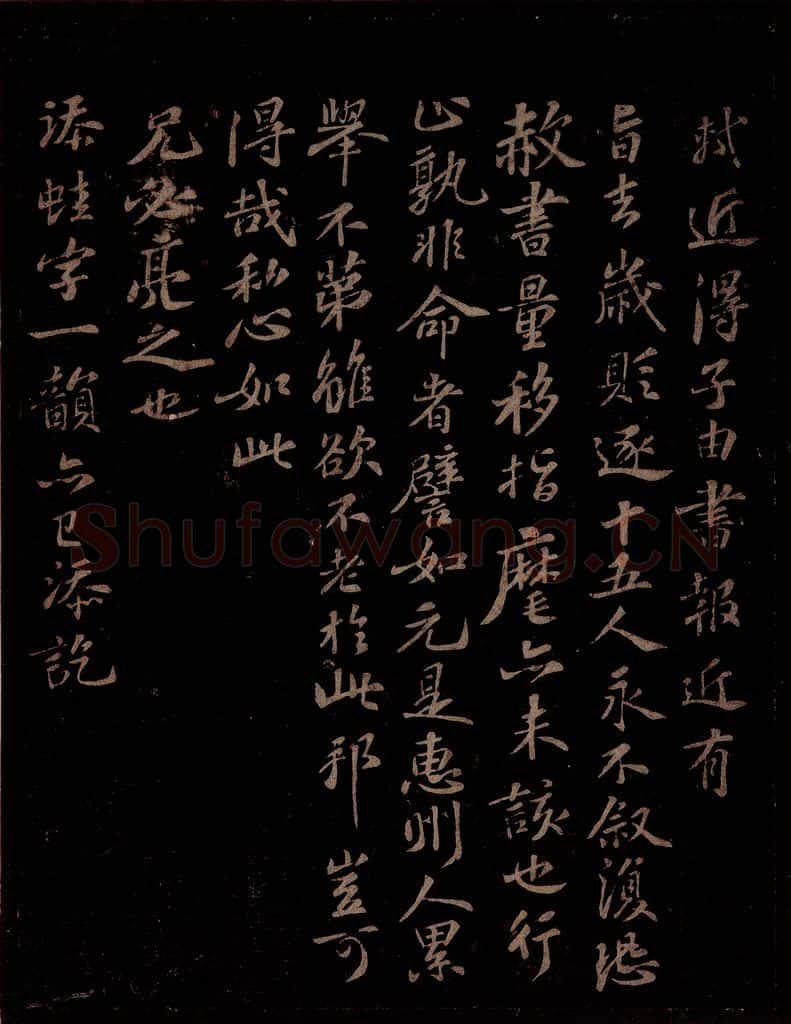 軾近得子由書報近有
旨去歲貶逐十五人永不叙復恐
赦書量移指麾亦未該也行
止孰非命者譬如元是惠州人累
舉不第雖欲不老於此邦豈可
得哉私心如此
兄必亮之也
添蛙字一韻亦已添訖
Shufawang.CN